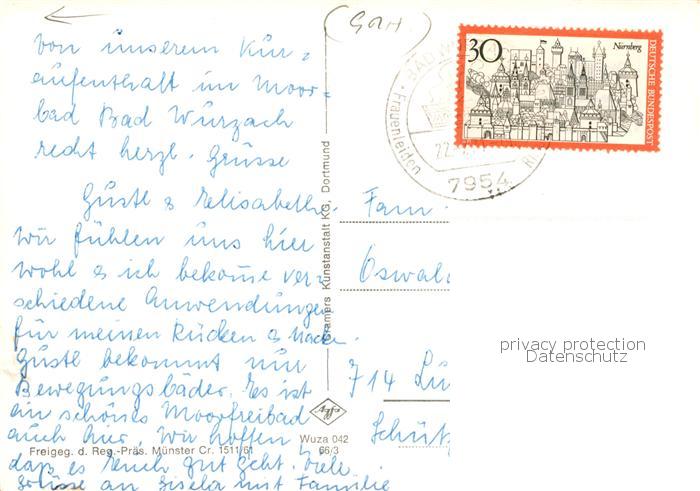 Von unserem Kur-
aufenthalt im Moor-
bad Bad Wurzach
recht herzl. Grüsse
Gustl & Elisabeth.
Wir fühlen uns hier
wohl & ich bekome ver-
schiedene Anwendungen
für meinen Rücken & Nacken
Gustl bekommt nur
Bewegungsbäder. Es ist
ein schönes Moorfreibad
auch hier. Wir hoffen
daß es Euch gut geht. Viele
Grüsse an Gisela mit Familie
Cramers Kunstanstalt KG, Dortmund
Agfa
Freigeg. d. Reg.-Präs. Münster Cr. 1511/61
Wuza 042
66/3
30
Nürnberg
DEUTSCHE BUNDESPOST
BAD
Frauenleiden
22.
7954
Fam
Oswal
714 Lu
Schütz
privacy protection
Datenschutz